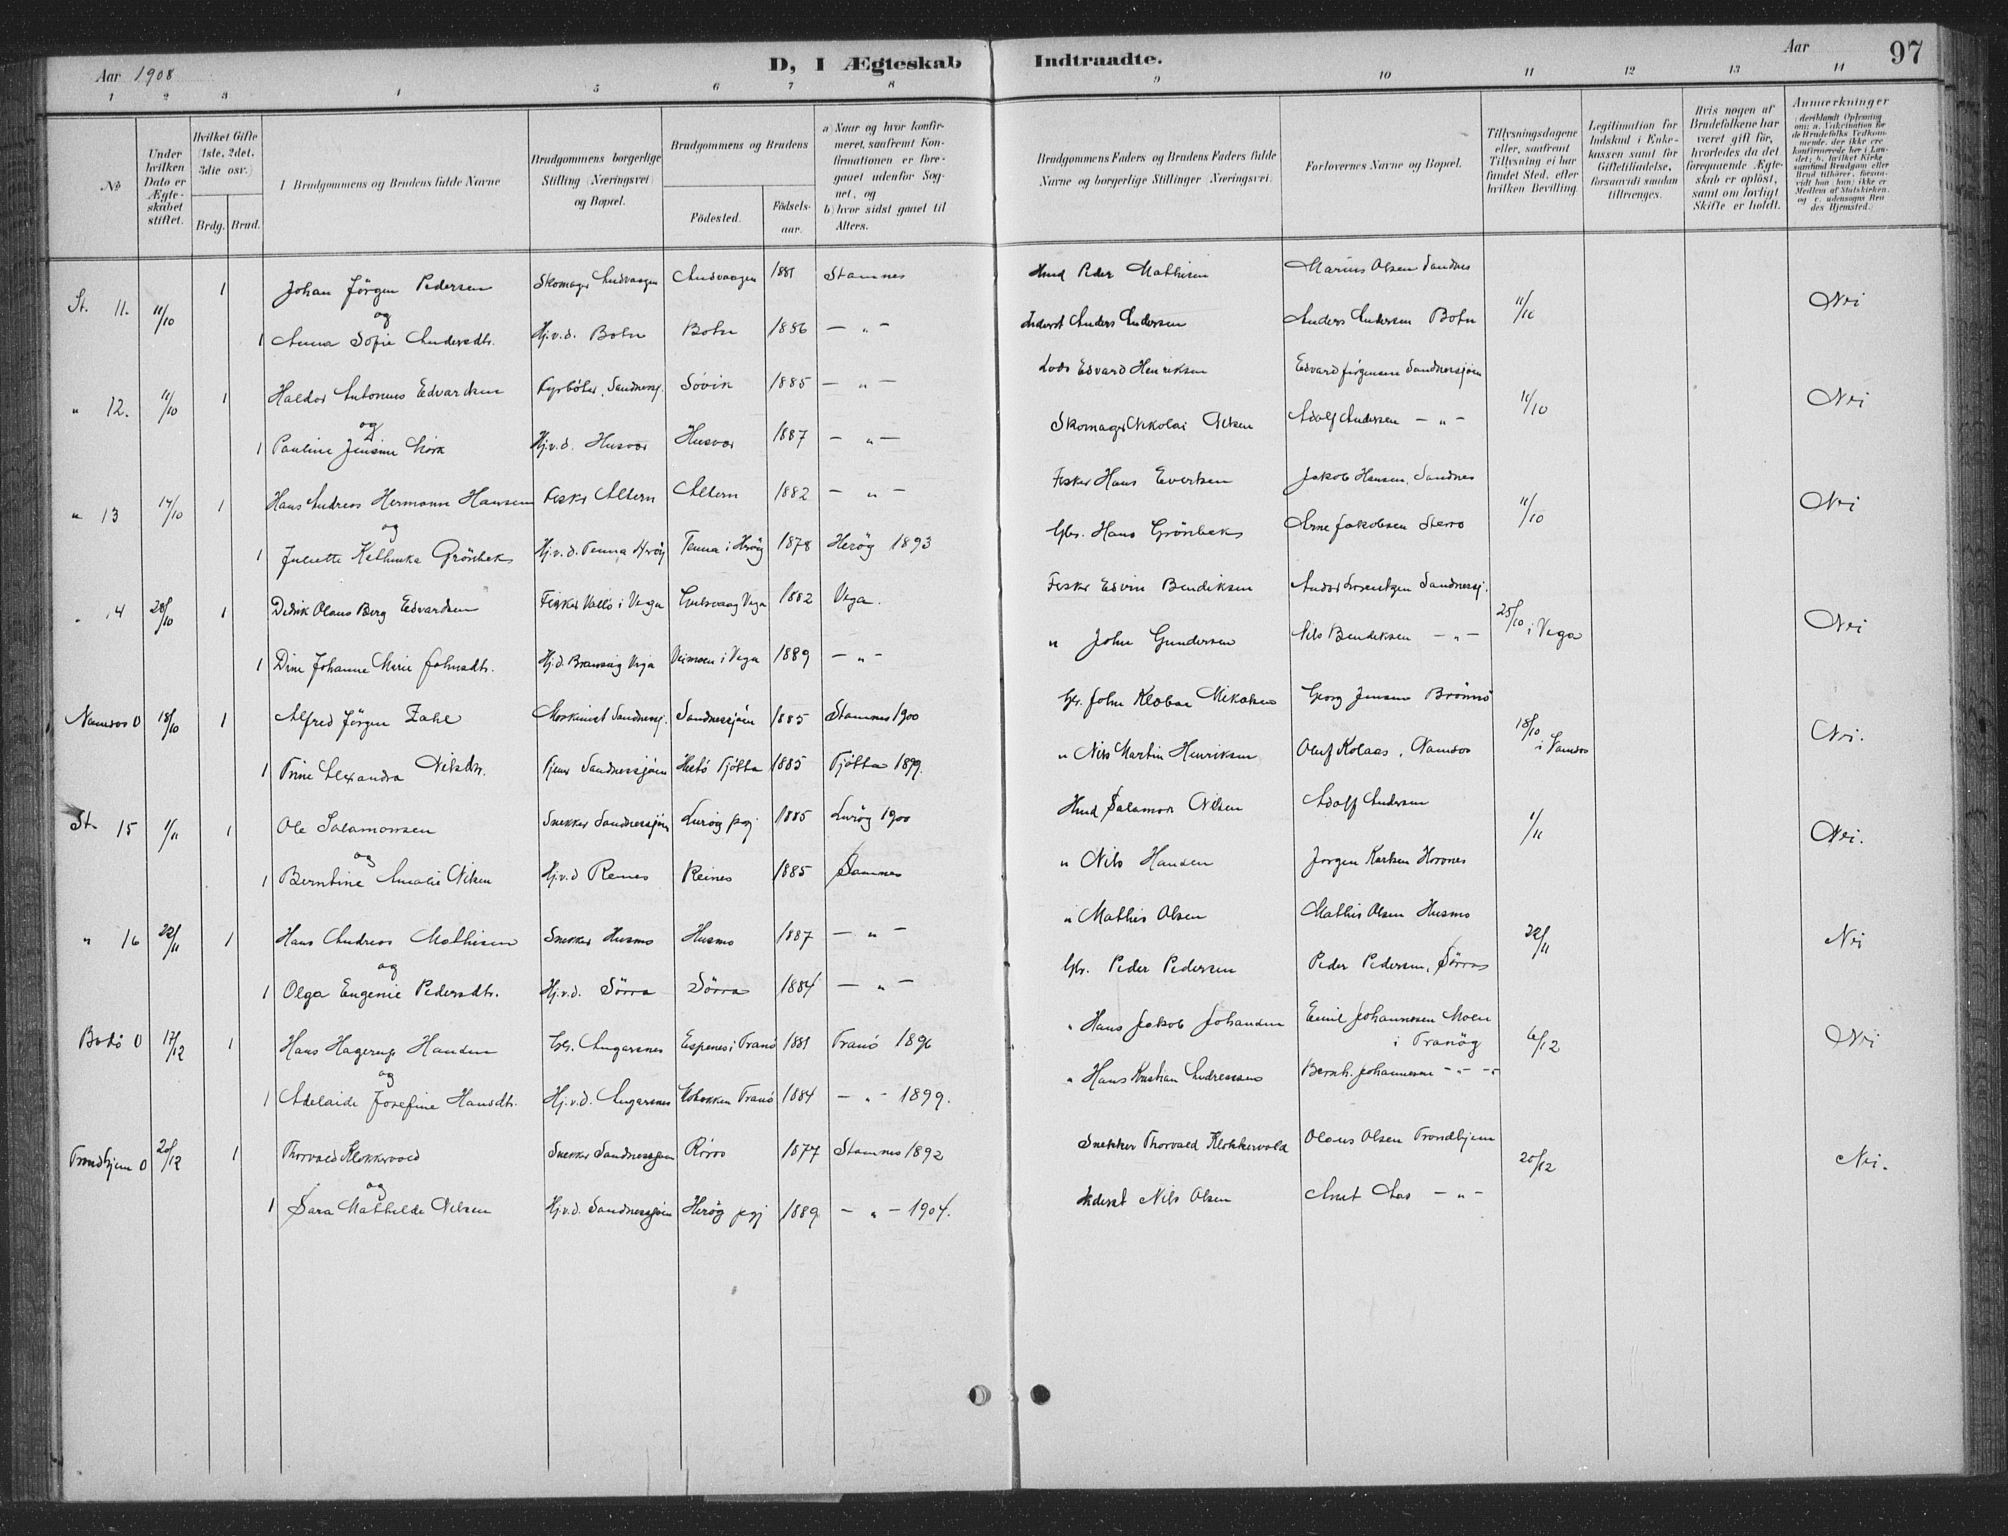 Aar 1908
D, I Ægteskab Indtraadte.
Aar
97
1 2 3 4 5 6 7 8 9 10 11 12 13 14
№
Under hvilken Dato er Ægteskabet stiftet.
Hvilket Gifte (1ste, 2det, 3die osv.)
Brdg. Brud.
I Brudgommens og Brudens fulde Navne
Brudgommens borgerlige Stilling (Næringsvei) og Bopæl.
Brudgommens og Brudens
Födested.
Födselsaar.
a) Naar og hvor konfirmeret, saafremt Konfirmationen er foregaaet udenfor Sognet, og
b) hvor sidst gaaet til Alters.
Brudgommens Faders og Brudens Faders fulde Navne og borgerlige Stillinger (Næringsvei).
Forlovernes Navne og Bopæl.
Tillysningsdagene eller, saafremt Tillysning ei har fundet Sted, efter hvilken Bevilling.
Legitimation for Indskud i Enkekassen samt for Giftetilladelse, forsaavidt saadan tiltrænges.
Hvis nogen af Brudefolkene har været gift för, hvorledes da det foregaaende Ægteskab er oplöst, samt om lovligt Skifte er holdt.
Anmærkninger
St. 11. 11/10 1 Johan Jörgen Pedersen Skomager Andvaagen Andvaagen 1881 Stamnes Hmd Peder Mathisen Marius Olsen Sandnes 11/10 Nei
og
1 Anna Sofie Andersdtr. Hj.v.d. Botn Botn 1886 — " — Inderst Anders Andersen Anders Andersen Botn
" 12. 11/10 1 Haldor Antonius Edvardsen Fyrböter, Sandnessj. Sövik 1885 — " — Lods Edvard Henriksen Edvard Jörgensen Sandnessjöen 11/10 Nei
og
1 Pauline Jensine Mörk Hj.v.d. Husvær Husvær 1887 — " — Skomager Nikolai Nilsen Adolf Andersen — " —
" 13 17/10 1 Hans Andreas Hermann Hansen Fisker Altern Altern 1882 — " — Fisker Hans Evertsen Jakob Hansen, Sandnes 11/10 Nei
og
1 Juliette Kathinka Grönbek Hj.v.d. Tenna Heröy Tenna i Heröy 1878 Heröy 1893 Gbr. Hans Grönbek Arne Jakobsen Sterro
" 14 28/10 1 Didrik Olaus Berg Edvardsen Fisker Vallö i Vega Gulsvaag Vega 1882 Vega. Fisker Edvin Bendiksen Andor Lorentzen Sandnessj. 25/10 i Vega Nei
1 Dine Johanne Marie Johnsdtr. Hj.d. Vega i Vega 1889 — " — " John Gundersen Nils Bendiksen — " —
Namsos 0 18/10 1 Alfred Jörgen Zahl Maskinist Sandnessj. Sandnessjöen 1885 Stamnes 1900 Gbr. John Klæboe Mikalsen Georg Jensen Brönnö 18/10 i Namsos Nei.
1 Trine Alexandra Nilsdtr. Tjener Sandnessjöen Hestö Tjötta 1885 Tjötta 1899. " Nils Martin Henriksen Oluf Kolaas, Namsos
St. 15 1/11 1 Ole Salamonsen Snekker Sandnessjöen Luröy pgj 1885 Luröy 1900 Hmd Salamon Nilsen Adolf Andersen 1/11 Nei.
og
1 Berntine Amalie Nilsen Hj.v.d Reines Reines 1885 Stamnes " Nils Hansen Jörgen Karlsen Horvnes
" 16 22/11 1 Hans Andreas Mathisen Snekker Husmo Husmo 1887 — " — " Mathis Olsen Mathis Olsen Husmo 22/11 Nei
og
1 Olga Eugenie Pedersdtr. Hj.v.d. Sörra Sörra 1884 — " — Gbr. Peder Pedersen Peder Pedersen, Sörra
Bodö 0 17/12 1 Hans Hagerup Hansen Gbr. Angersnes Espenes i Tranö 1881 Tranö 1896 " Hans Jakob Johansen Emil Johannesen Moen i Tranöy 6/12 Nei
og
1 Adelaide Josefine Hansdtr. Hj.v.d. Angersnes Tranö 1884 — " — 1899. " Hans Kristian Andreassen Bernh. Johannesen — " —
Trondhjem 0 20/12 1 Thorvald Klokkervold Snekker Sandnessjöen Röros 1877 Stamnes 1892 Snekker Thorvald Klokkervold Olaus Olsen Trondhjem 20/12 Nei.
og
1 Sara Mathilde Nilsen Hj.v.d. Sandnessjöen Heröy pgj 1889 — " — 1904. Inderst Nils Olsen Arnt Aas — " —